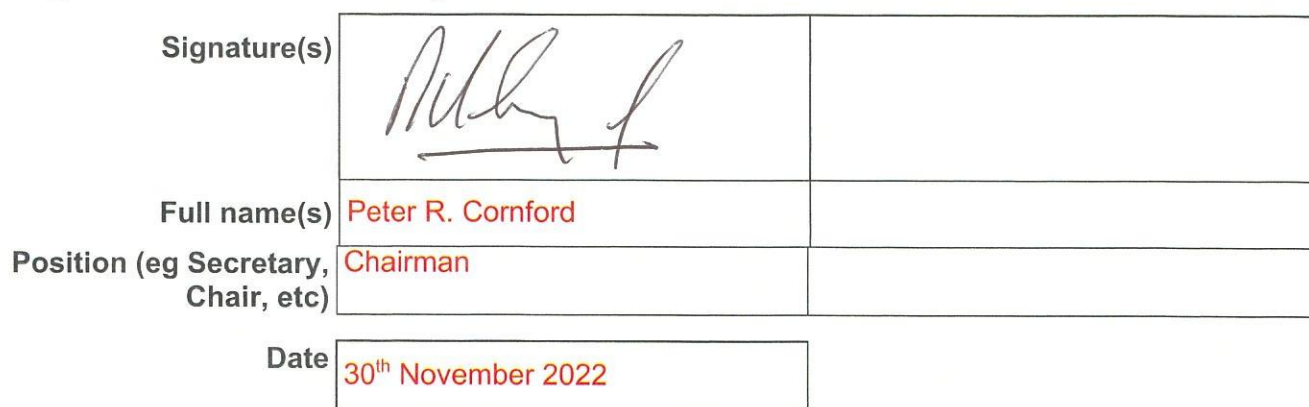 Signature(s)
Full name(s) Peter R. Cornford
Position (eg Secretary, Chairman
Chair, etc)
Date 30th November 2022